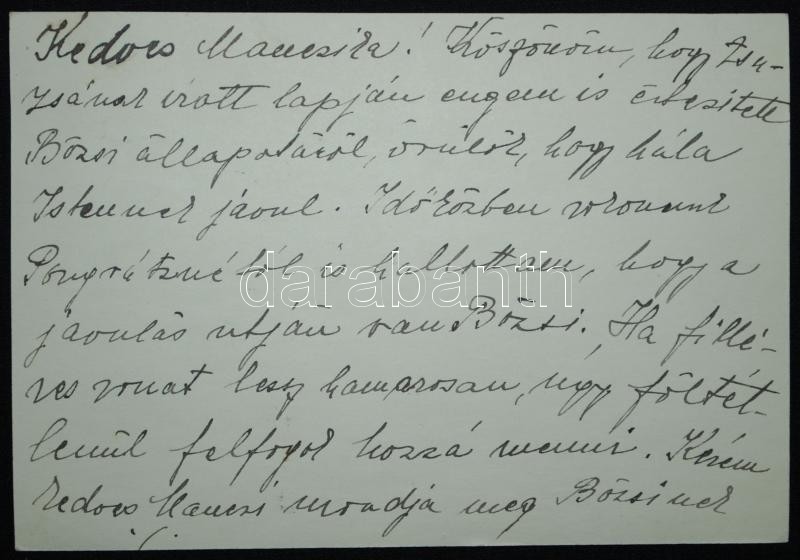 Kedves Manczika! Köszönöm, hogy Zsu-
zsának írott lapján engem is értesitett
Bözsi állapotáról, örülök, hogy hála
Istennek javul. Időközben rokonunk
Pongrátznétól is hallottam, hogy a
javulás utján van Bözsi. Ha fillé-
res vonat lesz hamarosan, úgy föltét-
lenül felfogok hozzá menni. Kérem
kedves Manczi mondja meg Bözsinek
darabanth